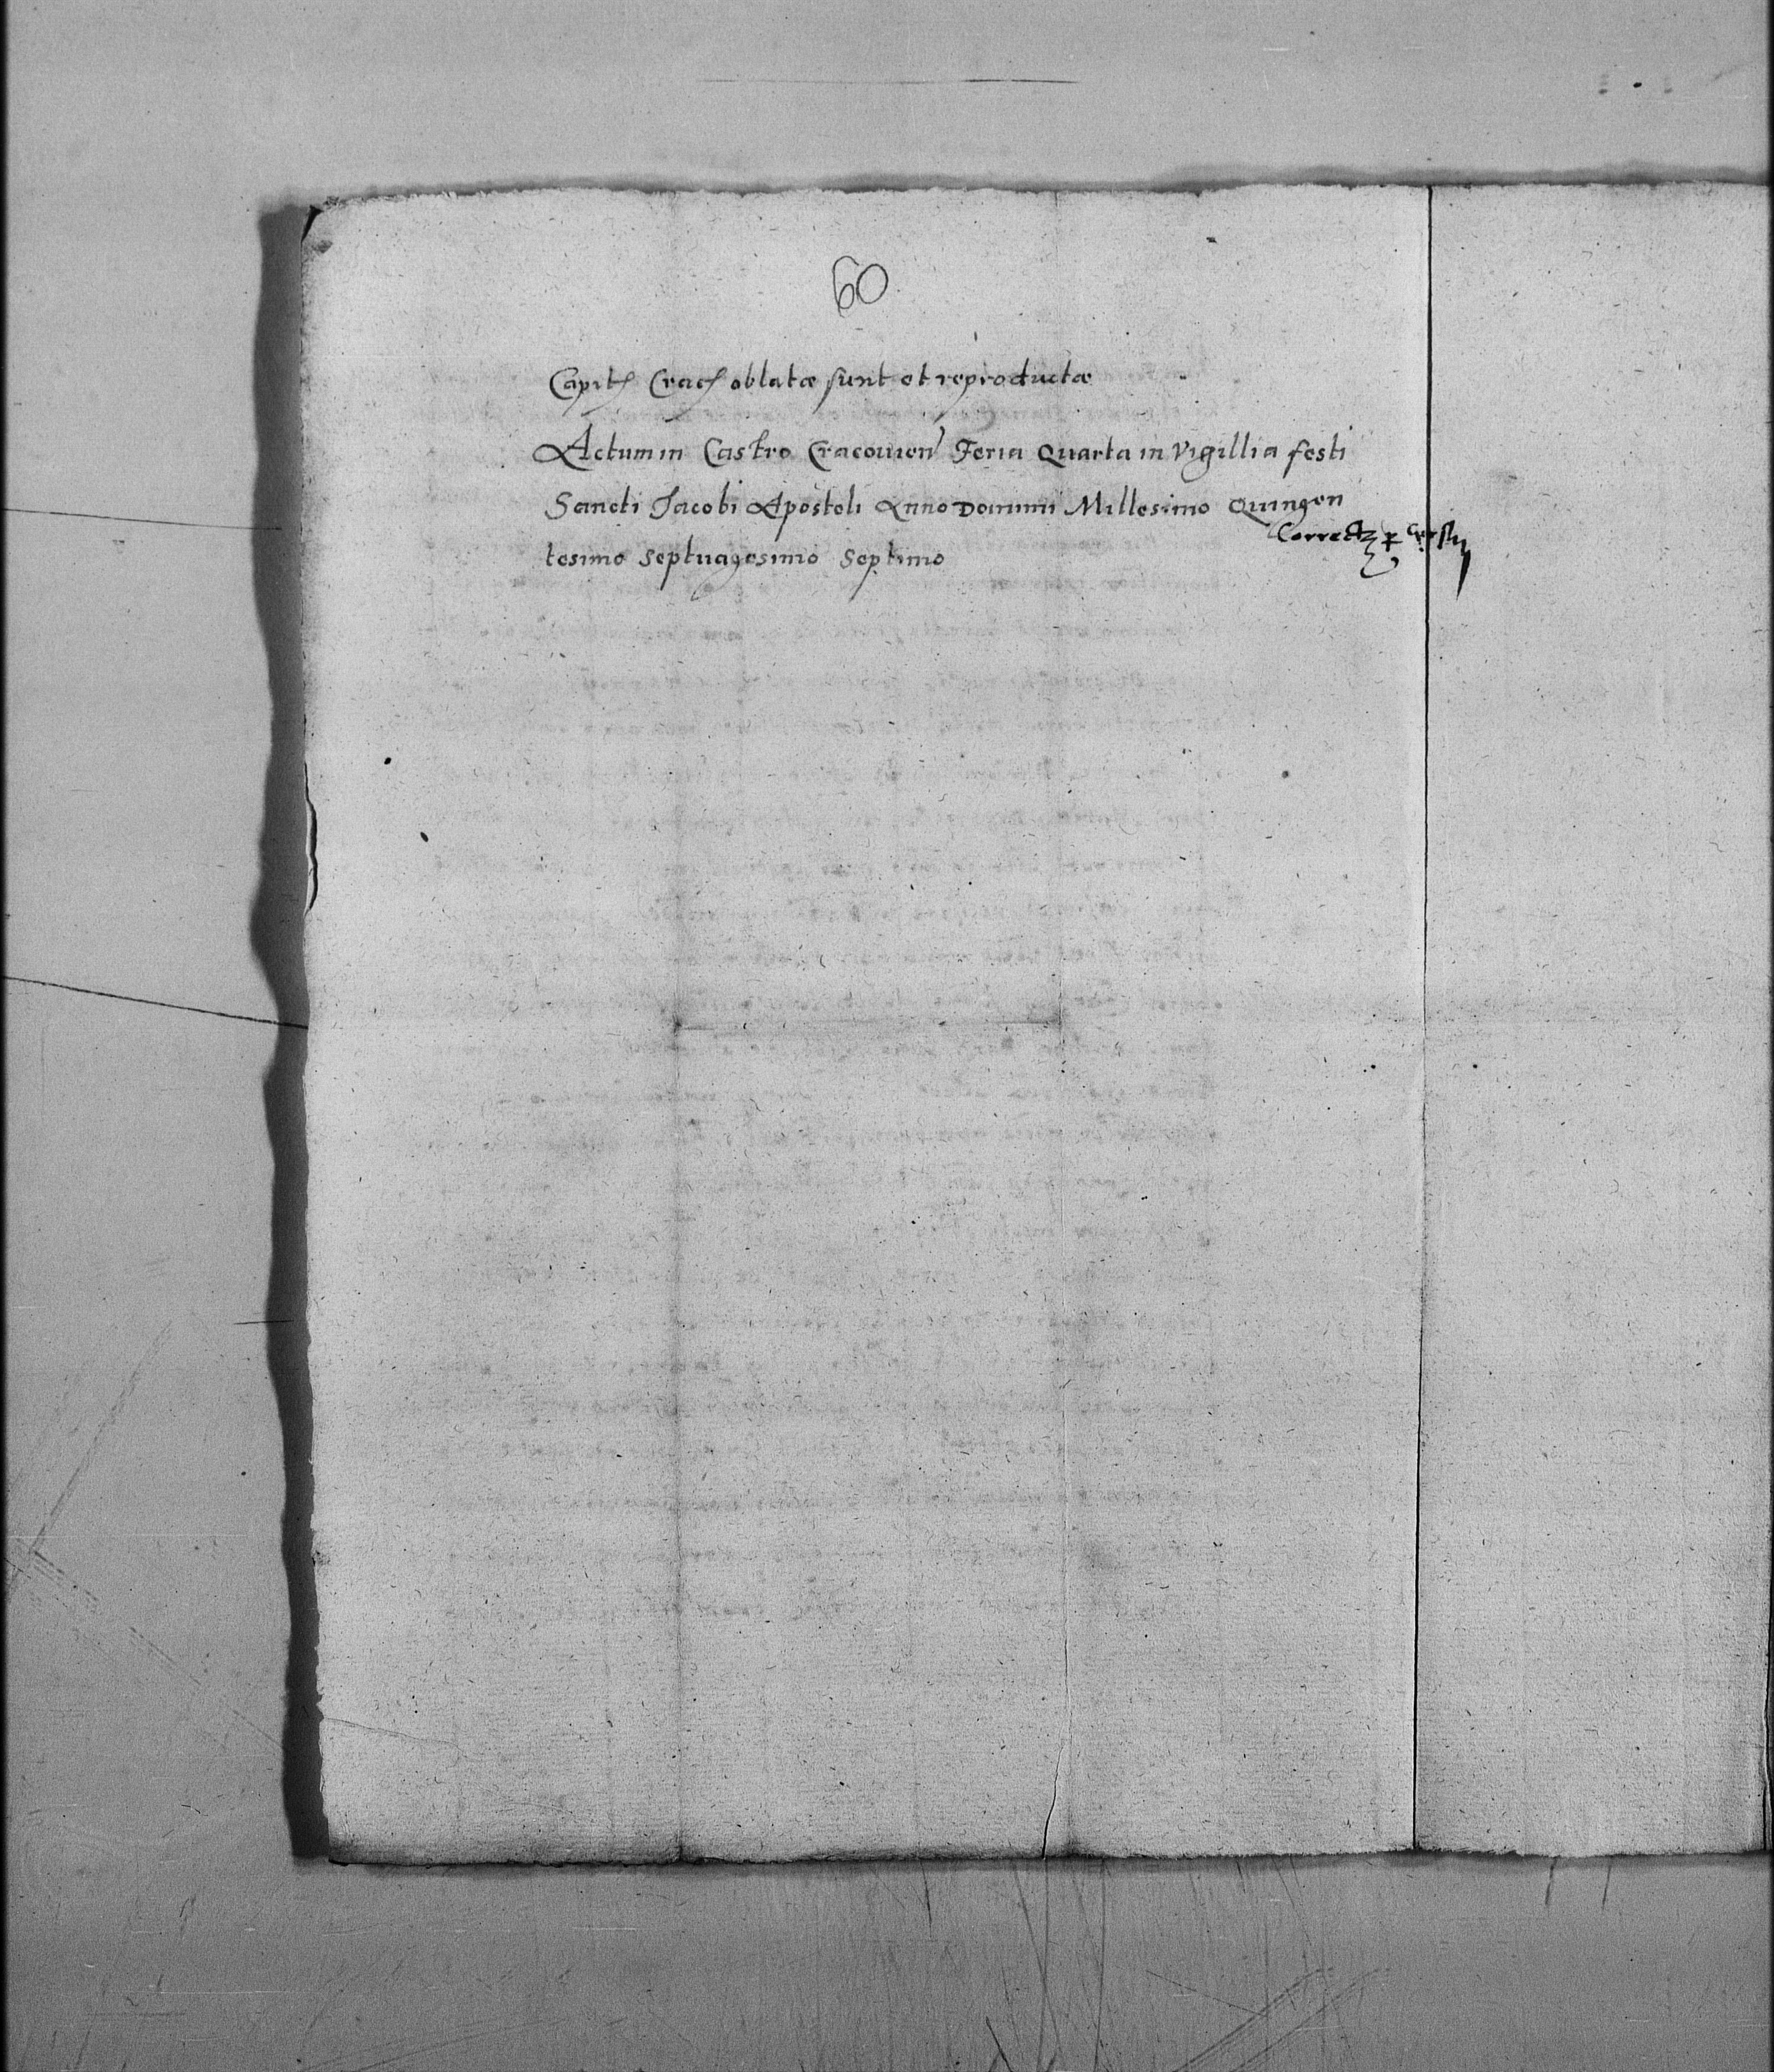 60
Capitł Cracȝ oblatæ sunt et reproductæ
Actum in Castro Cracouien Feria Quarta in Vigillia festi
Sancti Jacobi Apostoli Anno Domini Millesimo Quingen
tesimo Septuagesimo Septimo
Correct